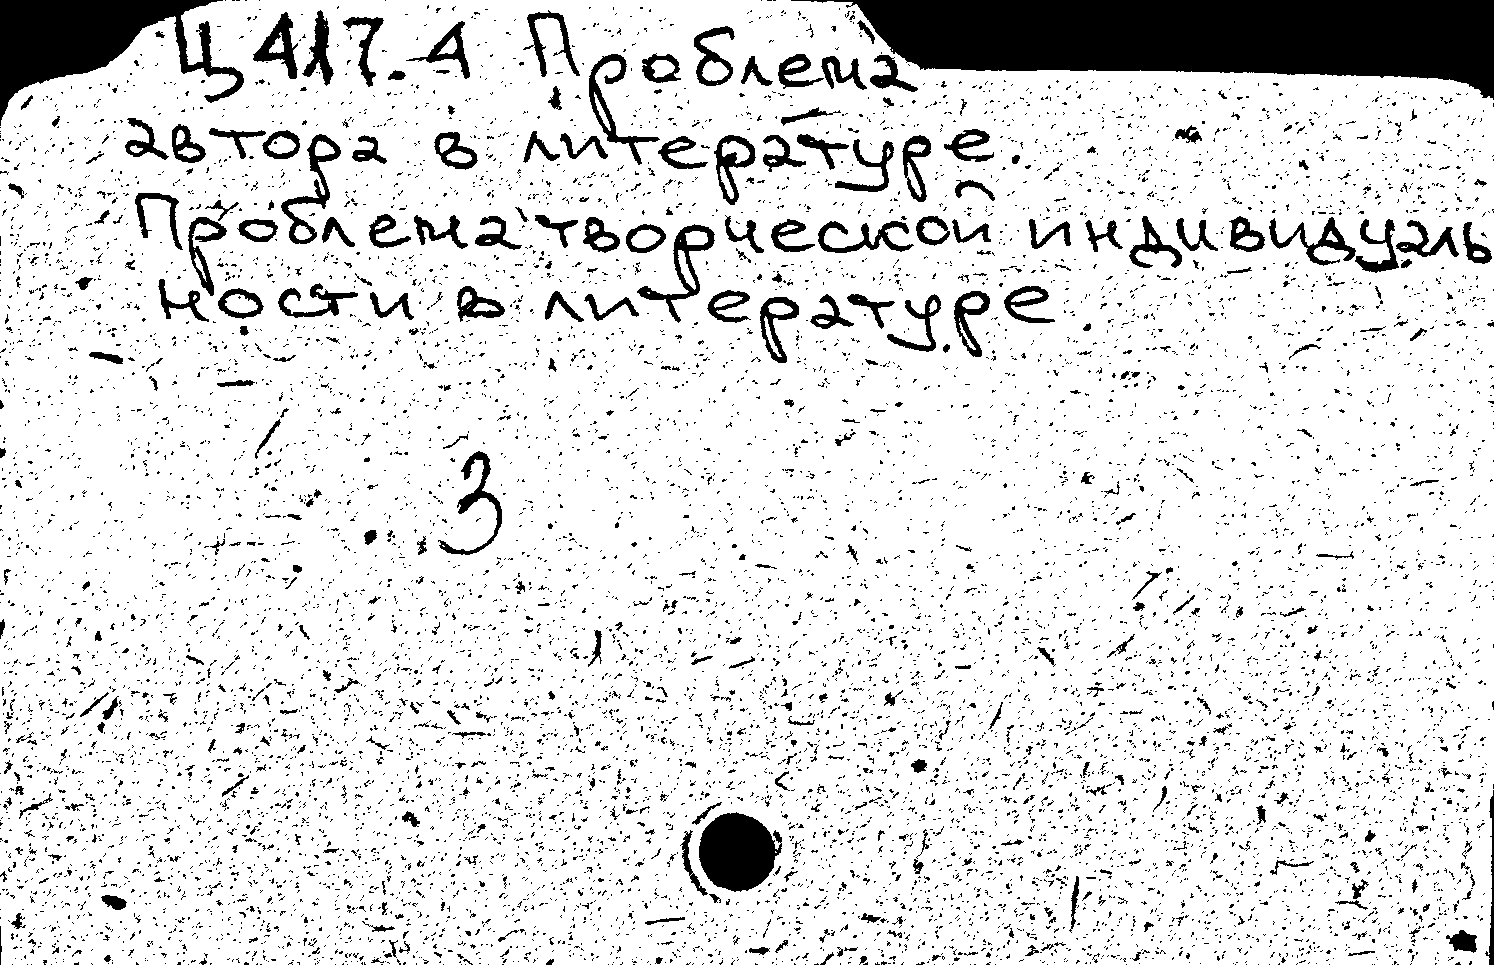 Ц417.4 Проблема
автора в литературе.
Проблема творческой индивидуаль
ности в литературе.
3